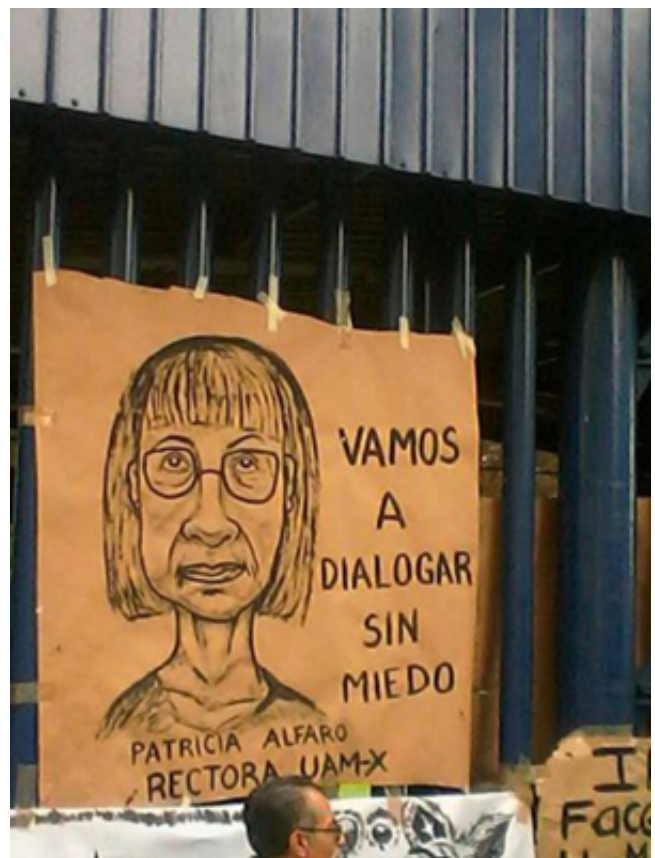 VAMOS
A
DIALOGAR
SIN
MIEDO
PATRICIA ALFARO
RECTORA UAM-X